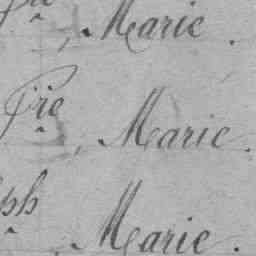 , Marie.
Pie, Marie.
ph, Marie.